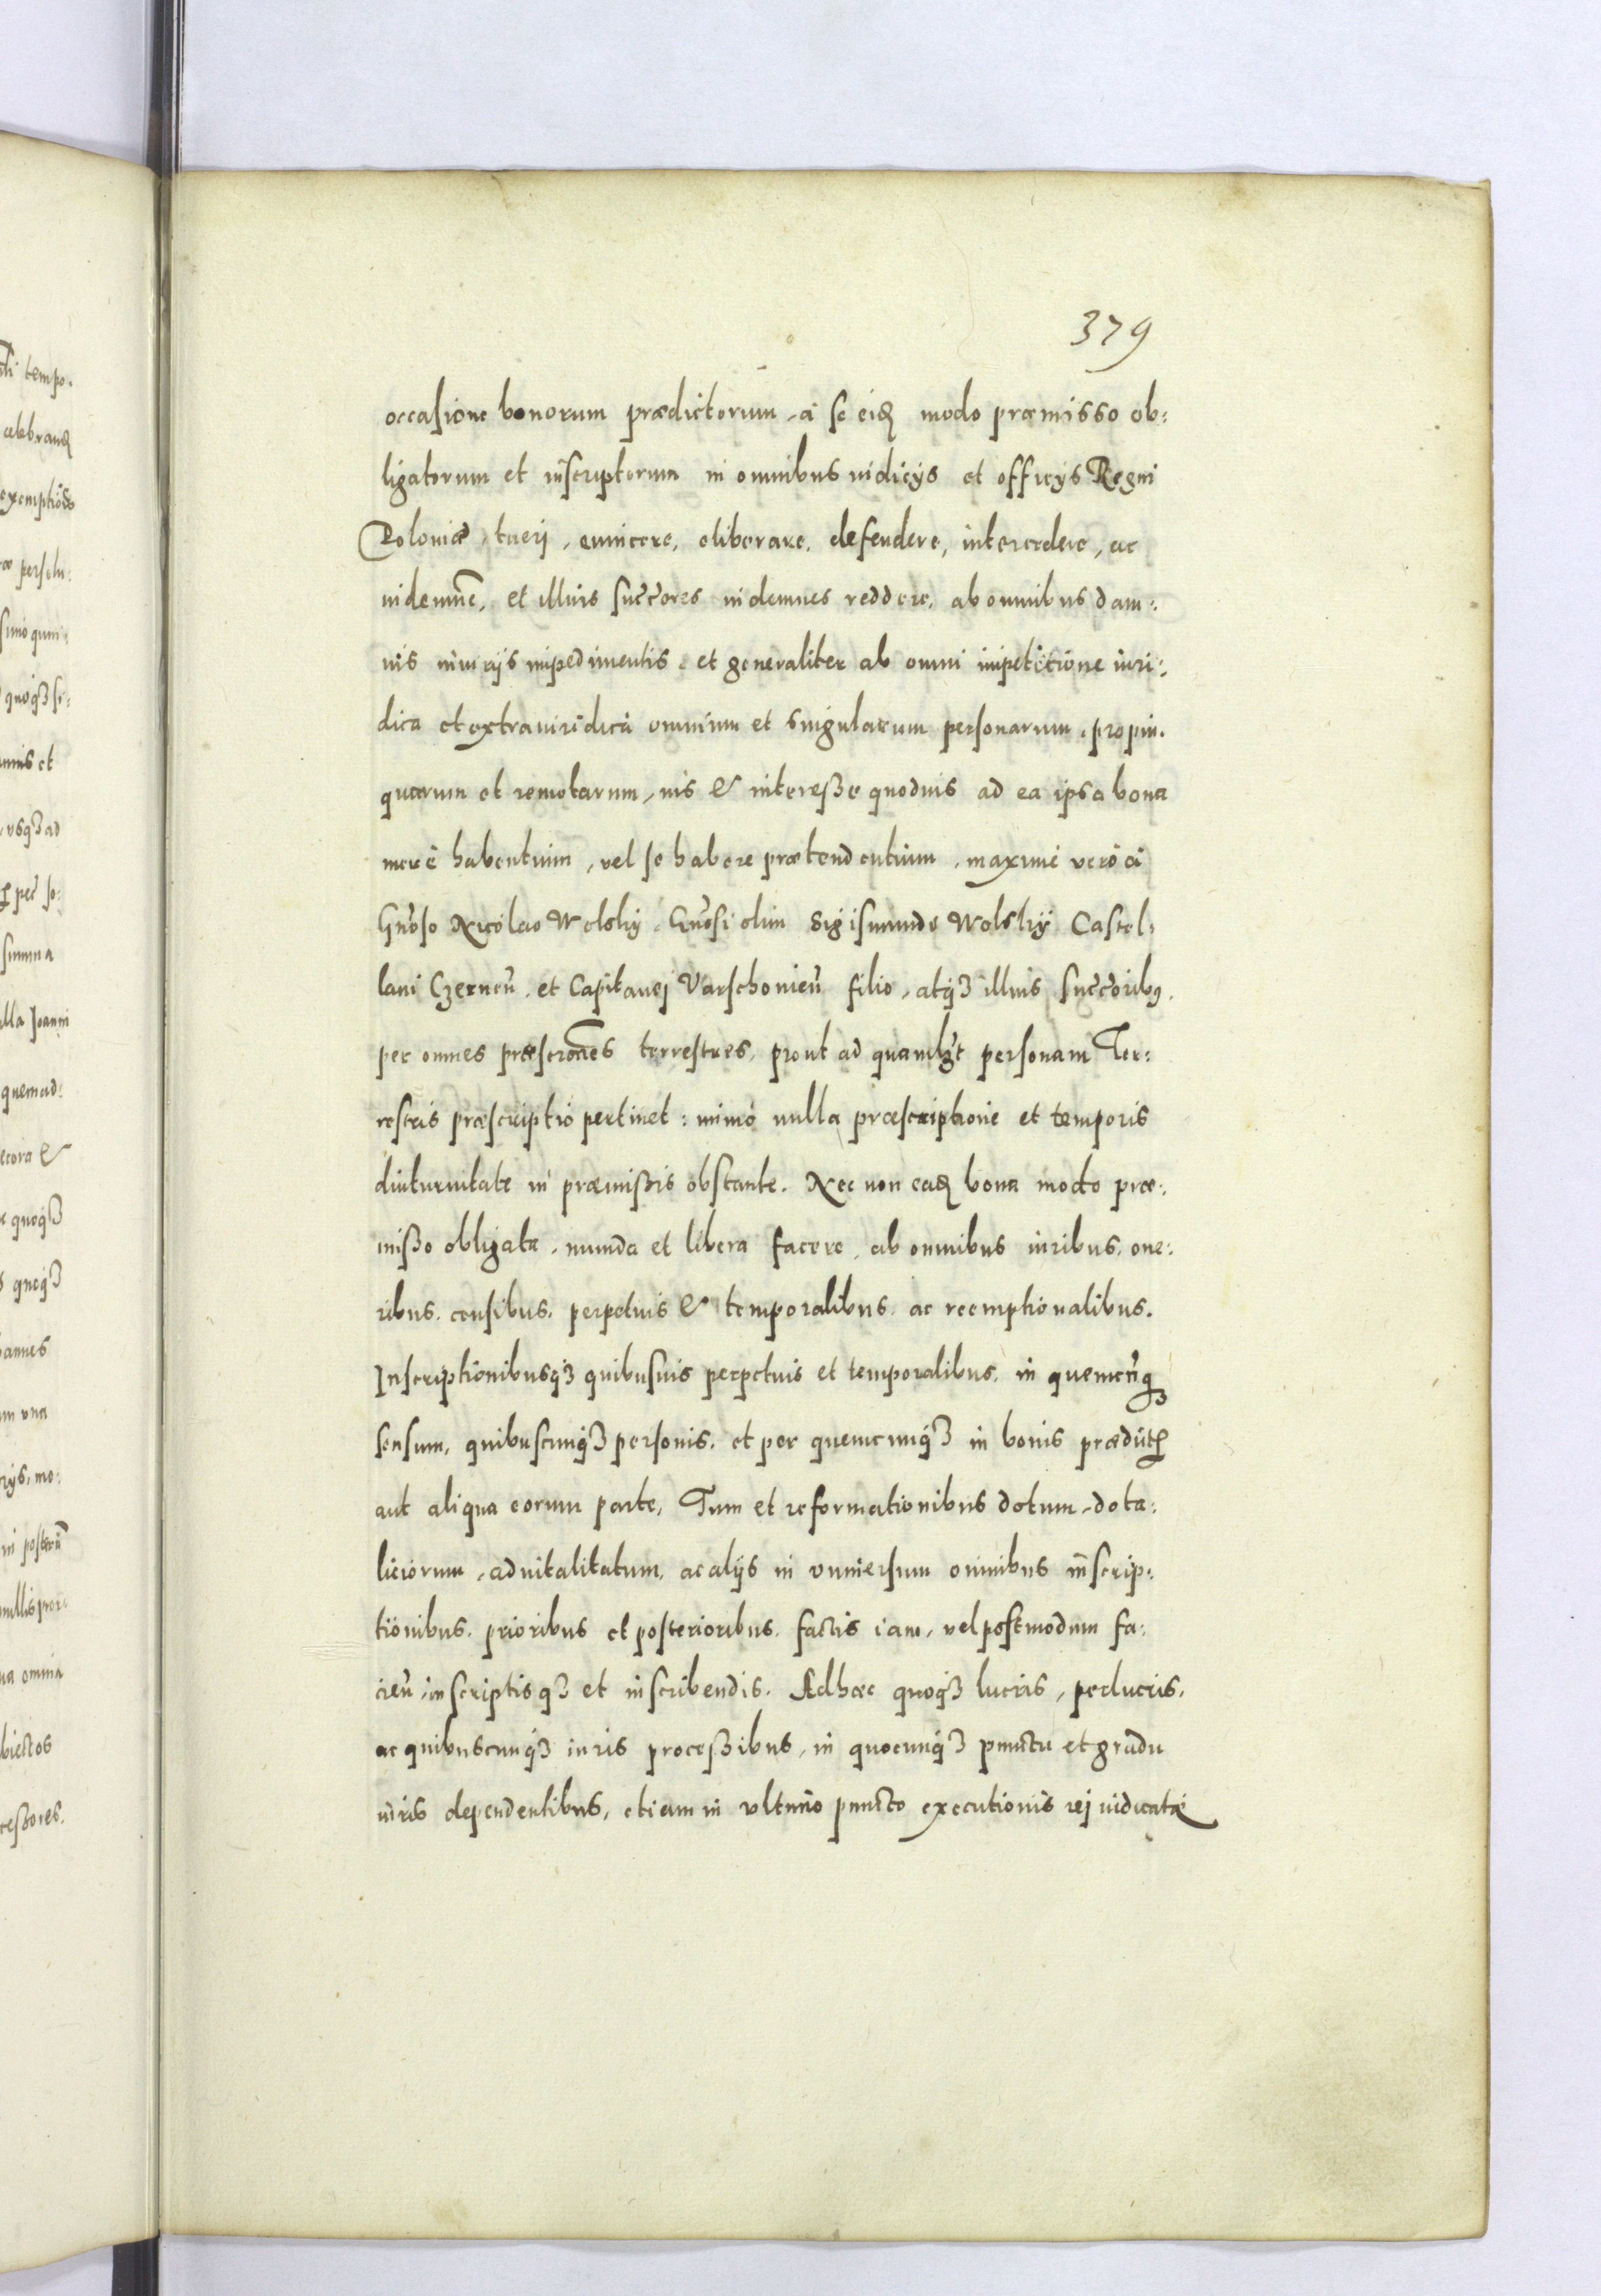 379
occasione bonorum prædictorum, a se eid. modo præmisso ob:
ligatorum et inscriptorum in omnibus iudicijs et officijs Regni
Poloniæ, tueri, euincere, eliberare, defendere, intercedere, ac
indemnē, et illius succores indemnes reddere, ab omnibus dam:
nis iniurijs impedimentis, et generaliter ab omni impetitione iuri:
dica et extraiuridica omnium et singularum personarum, propin.
quarum et remotarum, ius & interesse quoduis ad ea ipsa bona
mere habentium, vel se habere prætendentium, maxime vero a
Gnoso Nicolao Wolsky, Gnosi olim Sigismundo Wolsky Castel:
lani Czerneñ. et Capitanej Varschonieñ filio, atq3 illius succoribq.
per omnes præscrones terrestres, prout ad quamlibet personam Ter:
restris præscriptio pertinet: immo nulla præscriptione et temporis
diuturnitate in præmissis obstante. Nec non ead. bona modo præ:
misso obligata, munda et libera facere, ab omnibus iuribus, one:
ribus, censibus, perpetuis & temporalibus, ac reemptionalibus.
Inscriptionibusq3 quibusuis perpetuis et temporalibus, in quemcunq
sensum, quibuscunq3 personis, et per quemcunq3 in bonis prædict.
aut aliqua eorum parte, Tum et reformationibus dotum, dota:
liciorum, aduitalitatum, ac alijs in vniuersum omnibus inscrip:
tionibus, prioribus et posterioribus, factis iam, vel postmodum fa:
cieñ, inscriptisq3 et inscribendis. Adhæc quoq3 lucris, perlucris,
ac quibuscunq3 iuris processibus, in quocunq3 punctu et gradu
iuris dependentibus, etiam in vltimo puncto executionis rej iudicatæ